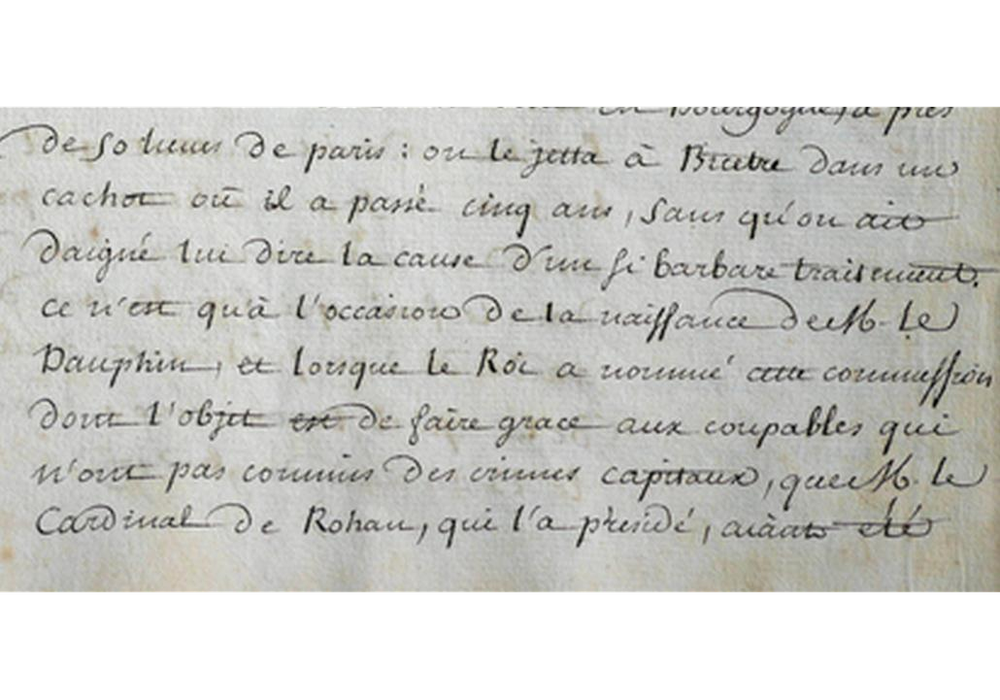 en Bourgogne, a près
de 50 lieues de paris : on le jetta à Bicetre dans un
cachot où il a passé cinq ans, sans qu'on ait
daigné lui dire la cause d'un si barbare traitement.
ce n'est qu'à l'occasion de la naissance de M. le
Dauphin, et lorsque le Roi a nommé cette commission
dont l'objet est de faire grace aux coupables qui
n'ont pas commis des crimes capitaux, que M. le
Cardinal de Rohan, qui l'a présidé, aiànt été